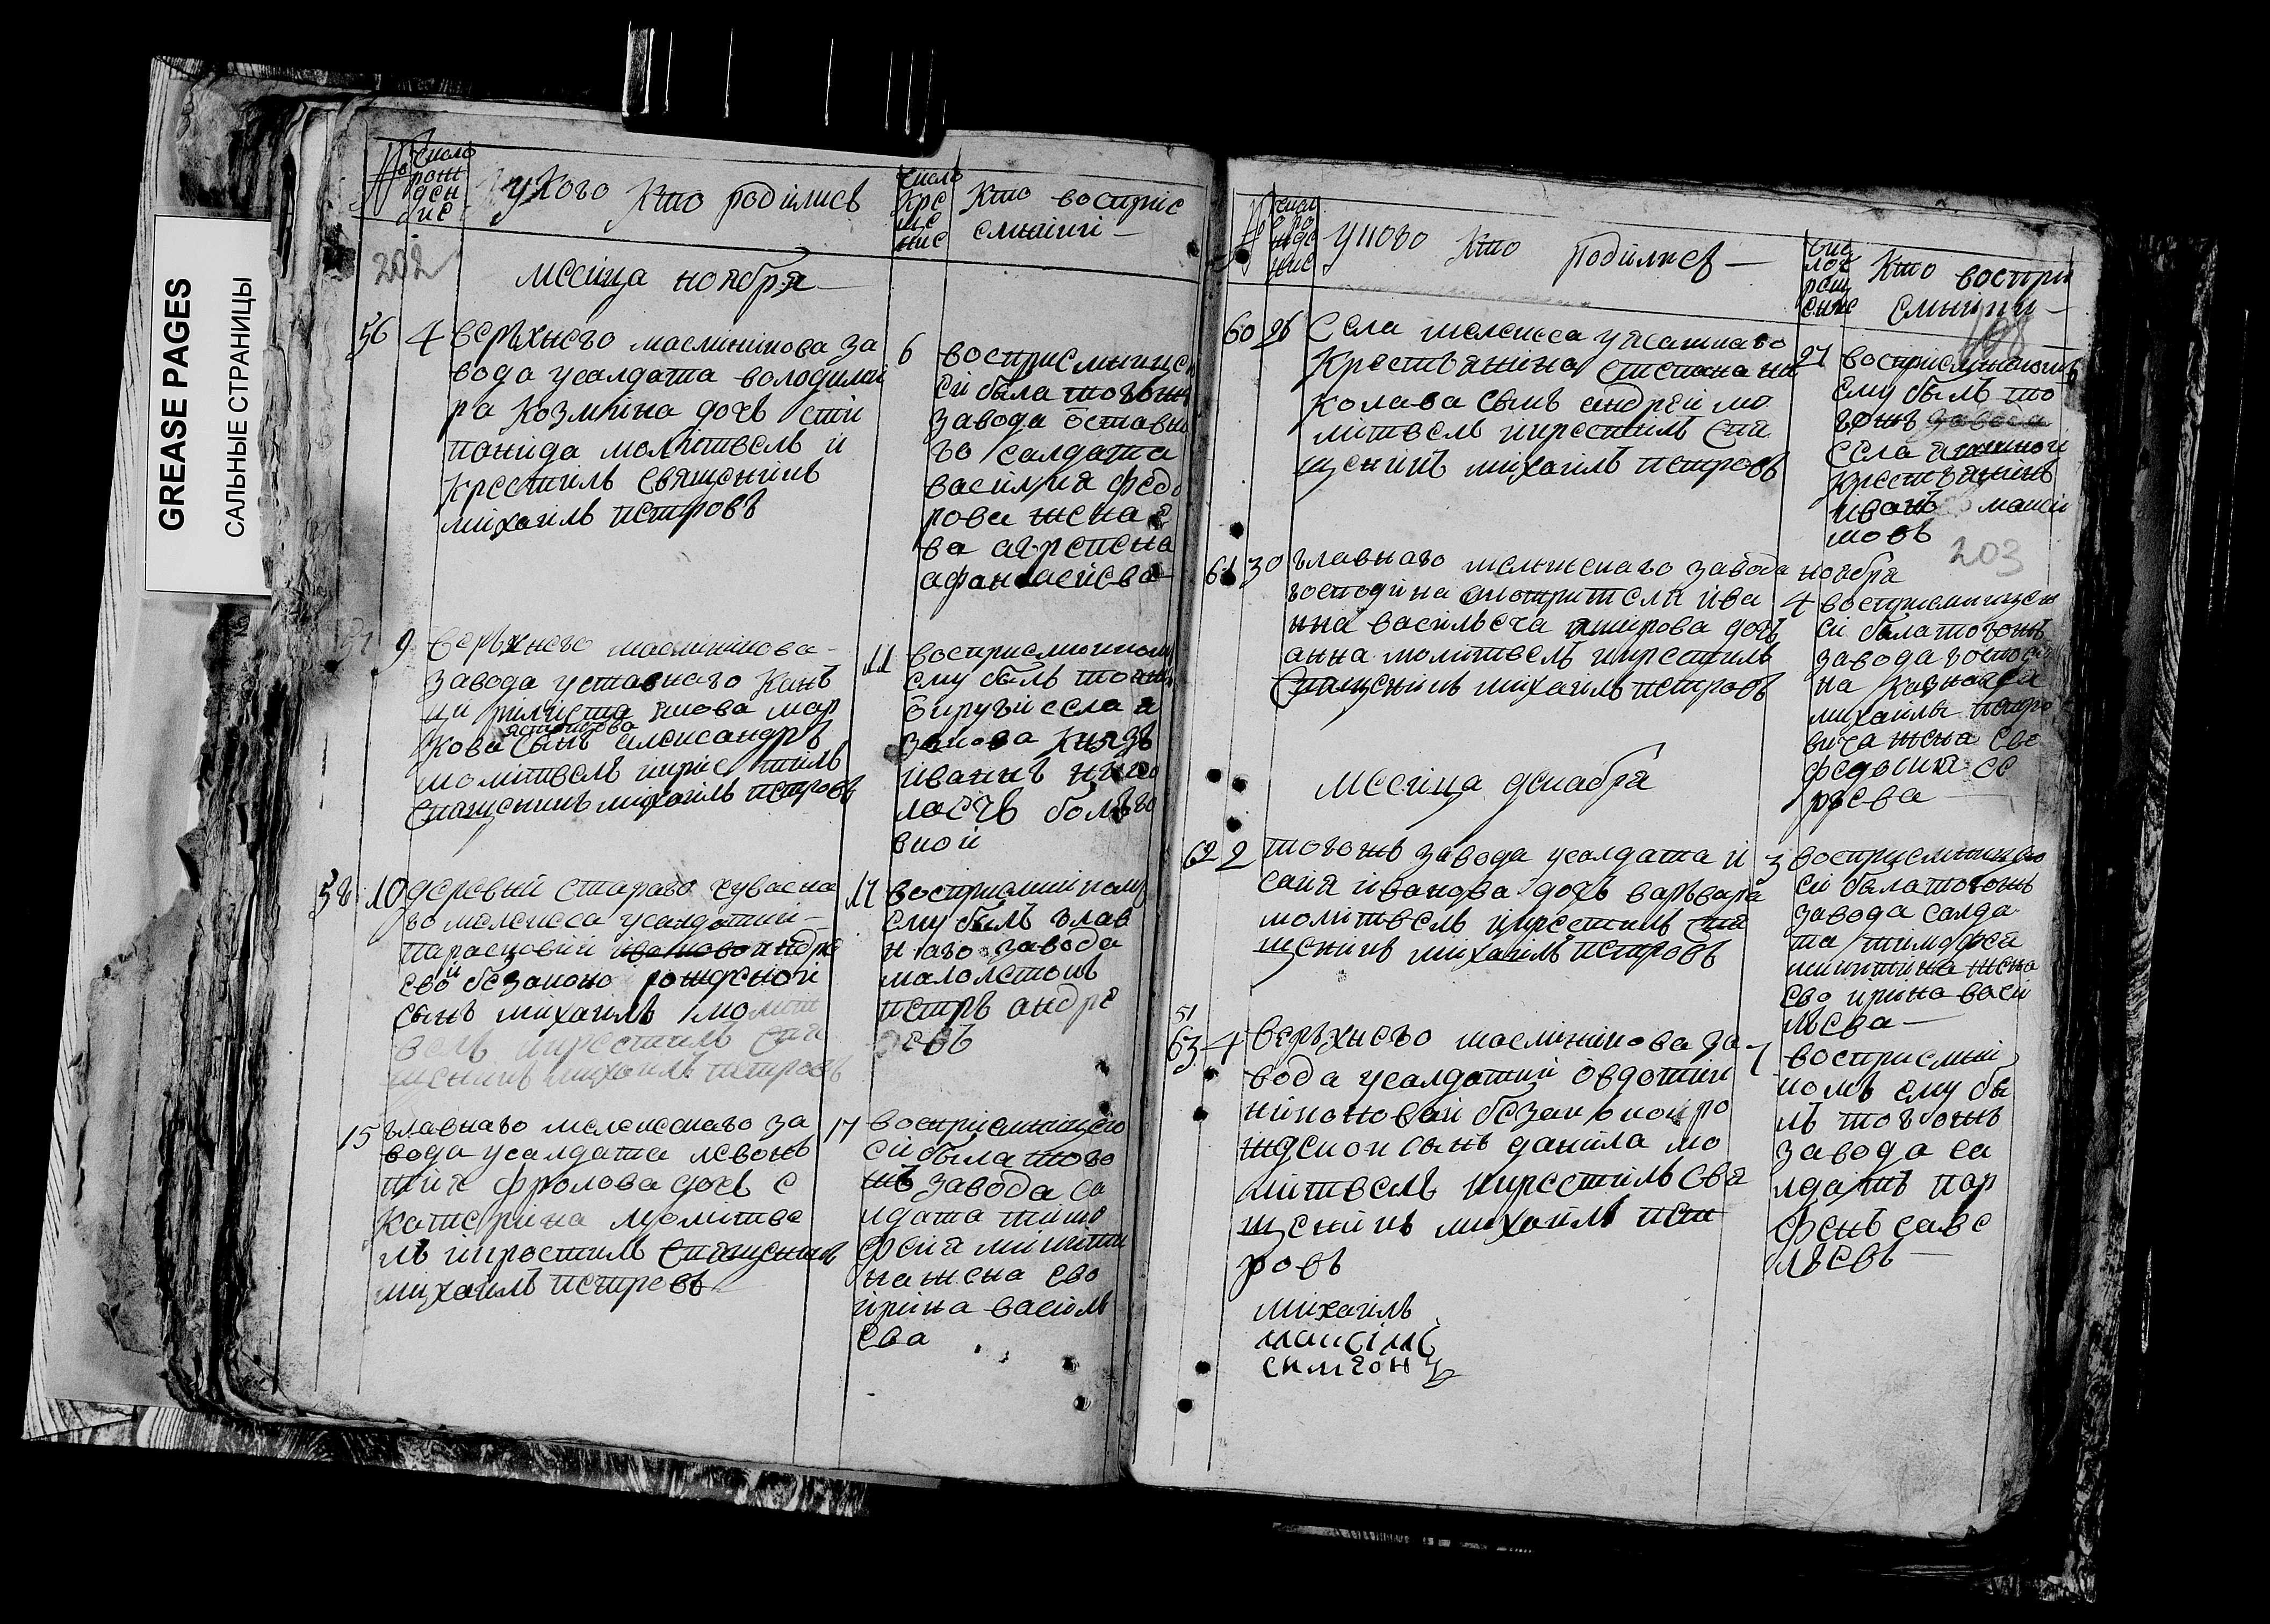 GREASE PAGES
САЛЬНЫЕ СТРАНИЦЫ
№
число
рож
ден
ние
у кого кто родились
число
кре
ще
ние
кто восприе
емники
202
месяца ноября
56 4 верхнего маслянікова за
вода у салдата володими
ра козміна дочь сти
понида молітвель и
крестиль священникъ
михаилъ петровъ
6 восприемницею
ей была тогожъ
завода оставно
го салдата
василия федо
рова жена е
ва агрепена
афанасиева
57 9 верхнего маслянікова
завода уставнаго канъ
це ріліста
кова сынъ александръ
молітвелъ и крес тилъ
священникъ михаилъ петровъ
11 восприемником
ему былъ
округи села
князь
иванъ нико
лаечъ
58 10 деревни стараго чуваска
го мелекеса у салдатки
парасковии андре
евой безаконо рожденой
сынъ михаилъ моліт
велъ и крестилъ свя
щеникъ михаилъ петровъ
11 восприемником
ему былъ глав
наго завода
малолетокъ
петръ андре
евъ
15 главнаго мелекескаго за
вода у салдата левонь
тия фролова дочь е
катеріна молітве
лъ и крестилъ священикъ
михаилъ петровъ
17 восприемницею
ей была того
жъ завода са
лдата тимо
фея микити
на жена ево
ирина василь
ева
№
число
ро
жде
ние
у кого кто родились
чис
ло к
рещ
ение
кто воспри
емники
60 26 села мелекеса у ясашнаго
крестьяніна степана ни
колаева сынъ андрей мо
литвелъ и крестилъ свя
щеникъ михаилъ петровъ
27 восприемникомъ
ему былъ то
гожъ завода
села ясашной
крестьянинъ
иванъ макси
мовъ
203
61 30 главнаго мелекескаго завода
господина смотрителя ива
нна васильеча дочь
анна молітвелъ и крестилъ
священикъ михаилъ петровъ
ноября
4 восприемницею
ей была тогожъ
завода господи
на казначея
михаилы петро
вича жена ево
федосия се
ргеева
месяца декабря
62 2 тогожъ завода у салдата и
сайя иванова дочь варьвара
молітвелъ и крестилъ свя
щеникъ михаилъ петровъ
3 восприемницею
ей была тогожъ
завода салда
та тимофея
микитина жена
ево ирина васи
льева
51
63 4 верхнего маслянікова за
вода у салдатки овдотии
никоновай безаконой ро
жденои сынъ даніла мо
литвелъ и крестилъ свя
щеникъ михаилъ пет
ровъ
7 восприемни
комъ ему бы
лъ тогожъ
завода са
лдатъ пар
фенъ саве
льевъ
михаилъ
максімъ
симеонъ